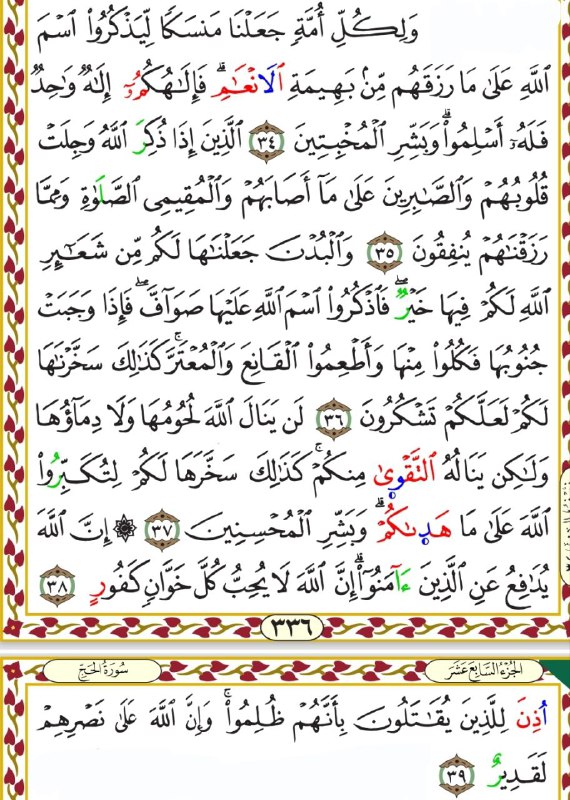 وَلِكُلِّ أُمَّةٖ جَعَلْنَا مَنسَكٗا لِّيَذْكُرُواْ اُسْمَ
اَللَّهِ عَلَىٰ مَا رَزَقَهُم مِّنۢ بَهِيمَةِ اِلَانْعَٰمِۖ فَإِلَٰهُكُمُۥٓ إِلَٰهٞ وَٰحِدٞ
فَلَهُۥٓ أَسْلِمُواْۖ وَبَشِّرِ اِلْمُخْبِتِينَ ٣٤ اَلَّذِينَ إِذَا ذُكِرَ اَللَّهُ وَجِلَتْ
قُلُوبُهُمْ وَالصَّٰبِرِينَ عَلَىٰ مَآ أَصَابَهُمْ وَالْمُقِيمِى اِلصَّلَوٰةِ وَمِمَّا
رَزَقْنَٰهُمْ يُنفِقُونَ ٣٥ وَالْبُدْنَ جَعَلْنَٰهَا لَكُم مِّن شَعَٰٓئِرِ
اِللَّهِ لَكُمْ فِيهَا خَيْرٞۖ فَاذْكُرُواْ اُسْمَ اَللَّهِ عَلَيْهَا صَوَآفَّۖ فَإِذَا وَجَبَتْ
جُنُوبُهَا فَكُلُواْ مِنْهَا وَأَطْعِمُواْ اُلْقَانِعَ وَالْمُعْتَرَّۚ كَذَٰلِكَ سَخَّرْنَٰهَا
لَكُمْ لَعَلَّكُمْ تَشْكُرُونَ ٣٦ لَن يَنَالَ اَللَّهَ لُحُومُهَا وَلَا دِمَآؤُهَا
وَلَٰكِن يَنَالُهُ اُلتَّقْوٜىٰ مِنكُمْۚ كَذَٰلِكَ سَخَّرَهَا لَكُمْ لِتُكَبِّرُواْ
اُللَّهَ عَلَىٰ مَا هَدٜىٰكُمْۖ وَبَشِّرِ اِلْمُحْسِنِينَ ٣٧ ۞ إِنَّ اَللَّهَ
يُدَٰفِعُ عَنِ اِلَّذِينَ ءَامَنُوٓاْۖ إِنَّ اَللَّهَ لَا يُحِبُّ كُلَّ خَوَّانٖ كَفُورٍ ٣٨
٣٣٦
اَلجُزْءُ السَّابِعَ عَشَرَ
سُورَةُ الحَجِّ
اُذِنَ لِلَّذِينَ يُقَٰتَلُونَ بِأَنَّهُمْ ظُلِمُواْۚ وَإِنَّ اَللَّهَ عَلَىٰ نَصْرِهِمْ
لَقَدِيرٌ ٣٩